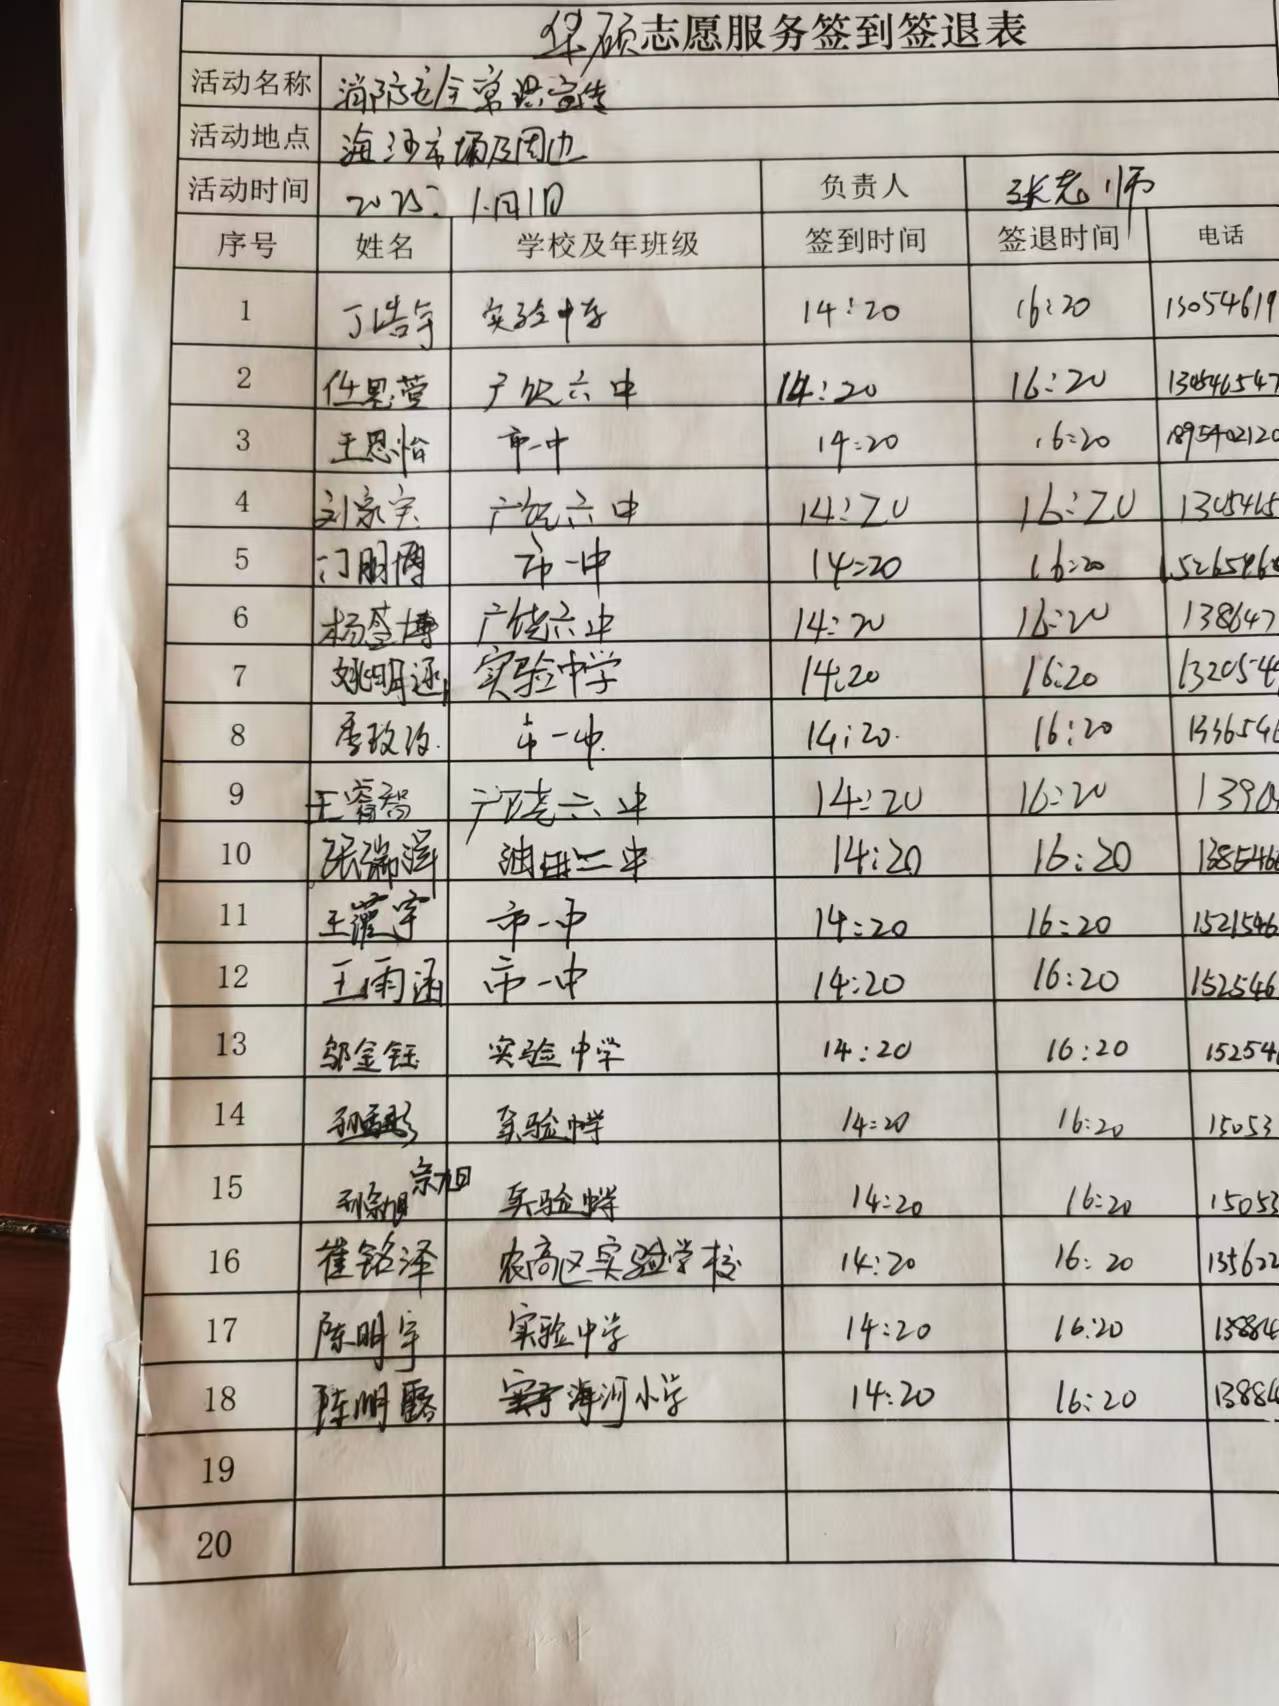 华硕志愿服务签到签退表
活动名称 消防安全常识宣传
活动地点 海沙市场及周边
活动时间 2025. 1月1日 负责人 张老师
序号 姓名 学校及年班级 签到时间 签退时间 电话
1 丁浩宇 实验中学 14:20 16:20 13054619
2 任思萱 广饶六中 14:20 16:20 130546547
3 王思怡 市一中 14:20 16:20 1895402120
4 刘家宾 广饶六中 14:20 16:20 1305465
5 门朋博 市一中 14:20 16:20 15265468
6 杨蓥博 广饶六中 14:20 16:20 138647
7 姚明涵 实验中学 14:20 16:20 1320546
8 李玫 市一中 14:20 16:20 1336546
9 王睿智 广饶六中 14:20 16:20 1390
10 张瑞洋 油田二中 14:20 16:20 1385466
11 王灌宇 市一中 14:20 16:20 1521546
12 王雨涵 市一中 14:20 16:20 152546
13 邬金钰 实验中学 14:20 16:20 152546
14 实验中学 14:20 16:20 15053
15 孙宗旭 宗旭 实验中学 14:20 16:20 15053
16 崔铭泽 农高区实验学校 14:20 16:20 135622
17 陈明宇 实验中学 14:20 16:20 13884
18 陈明露 海河小学 14:20 16:20 13884
19
20